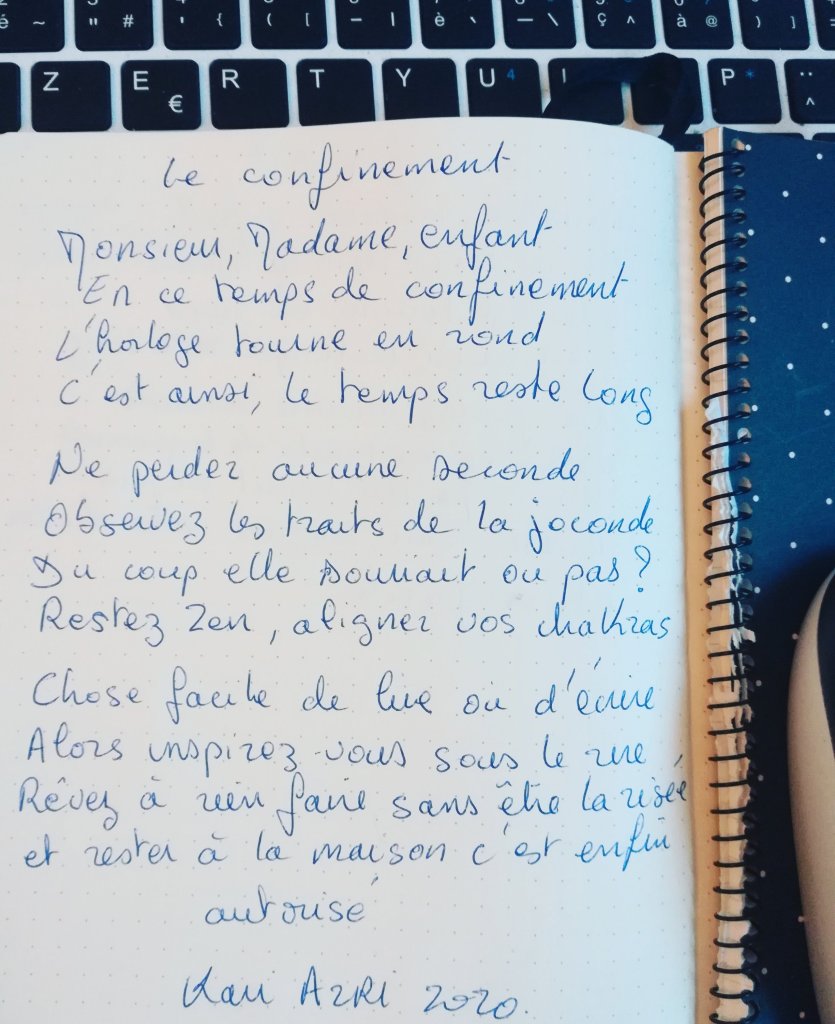 é ~ " # ' { ( [ - | è ` _ \ ç ^ à @ ) ]
Z E € R T Y U 4 I P * ¨ ^
Le confinement
Monsieur, Madame, enfant
En ce temps de confinement
L'horloge tourne en rond
C'est ainsi, le temps reste long
Ne perdez aucune seconde
Observez les traits de la joconde
Du coup elle souriait ou pas?
Restez zen, alignez vos chakras
Chose facile de lire ou d'écrire
Alors inspirez-vous sous le rire,
Rêvez à rien faire sans être la risée
et rester à la maison c'est enfin
autorisé
AZRI 2020